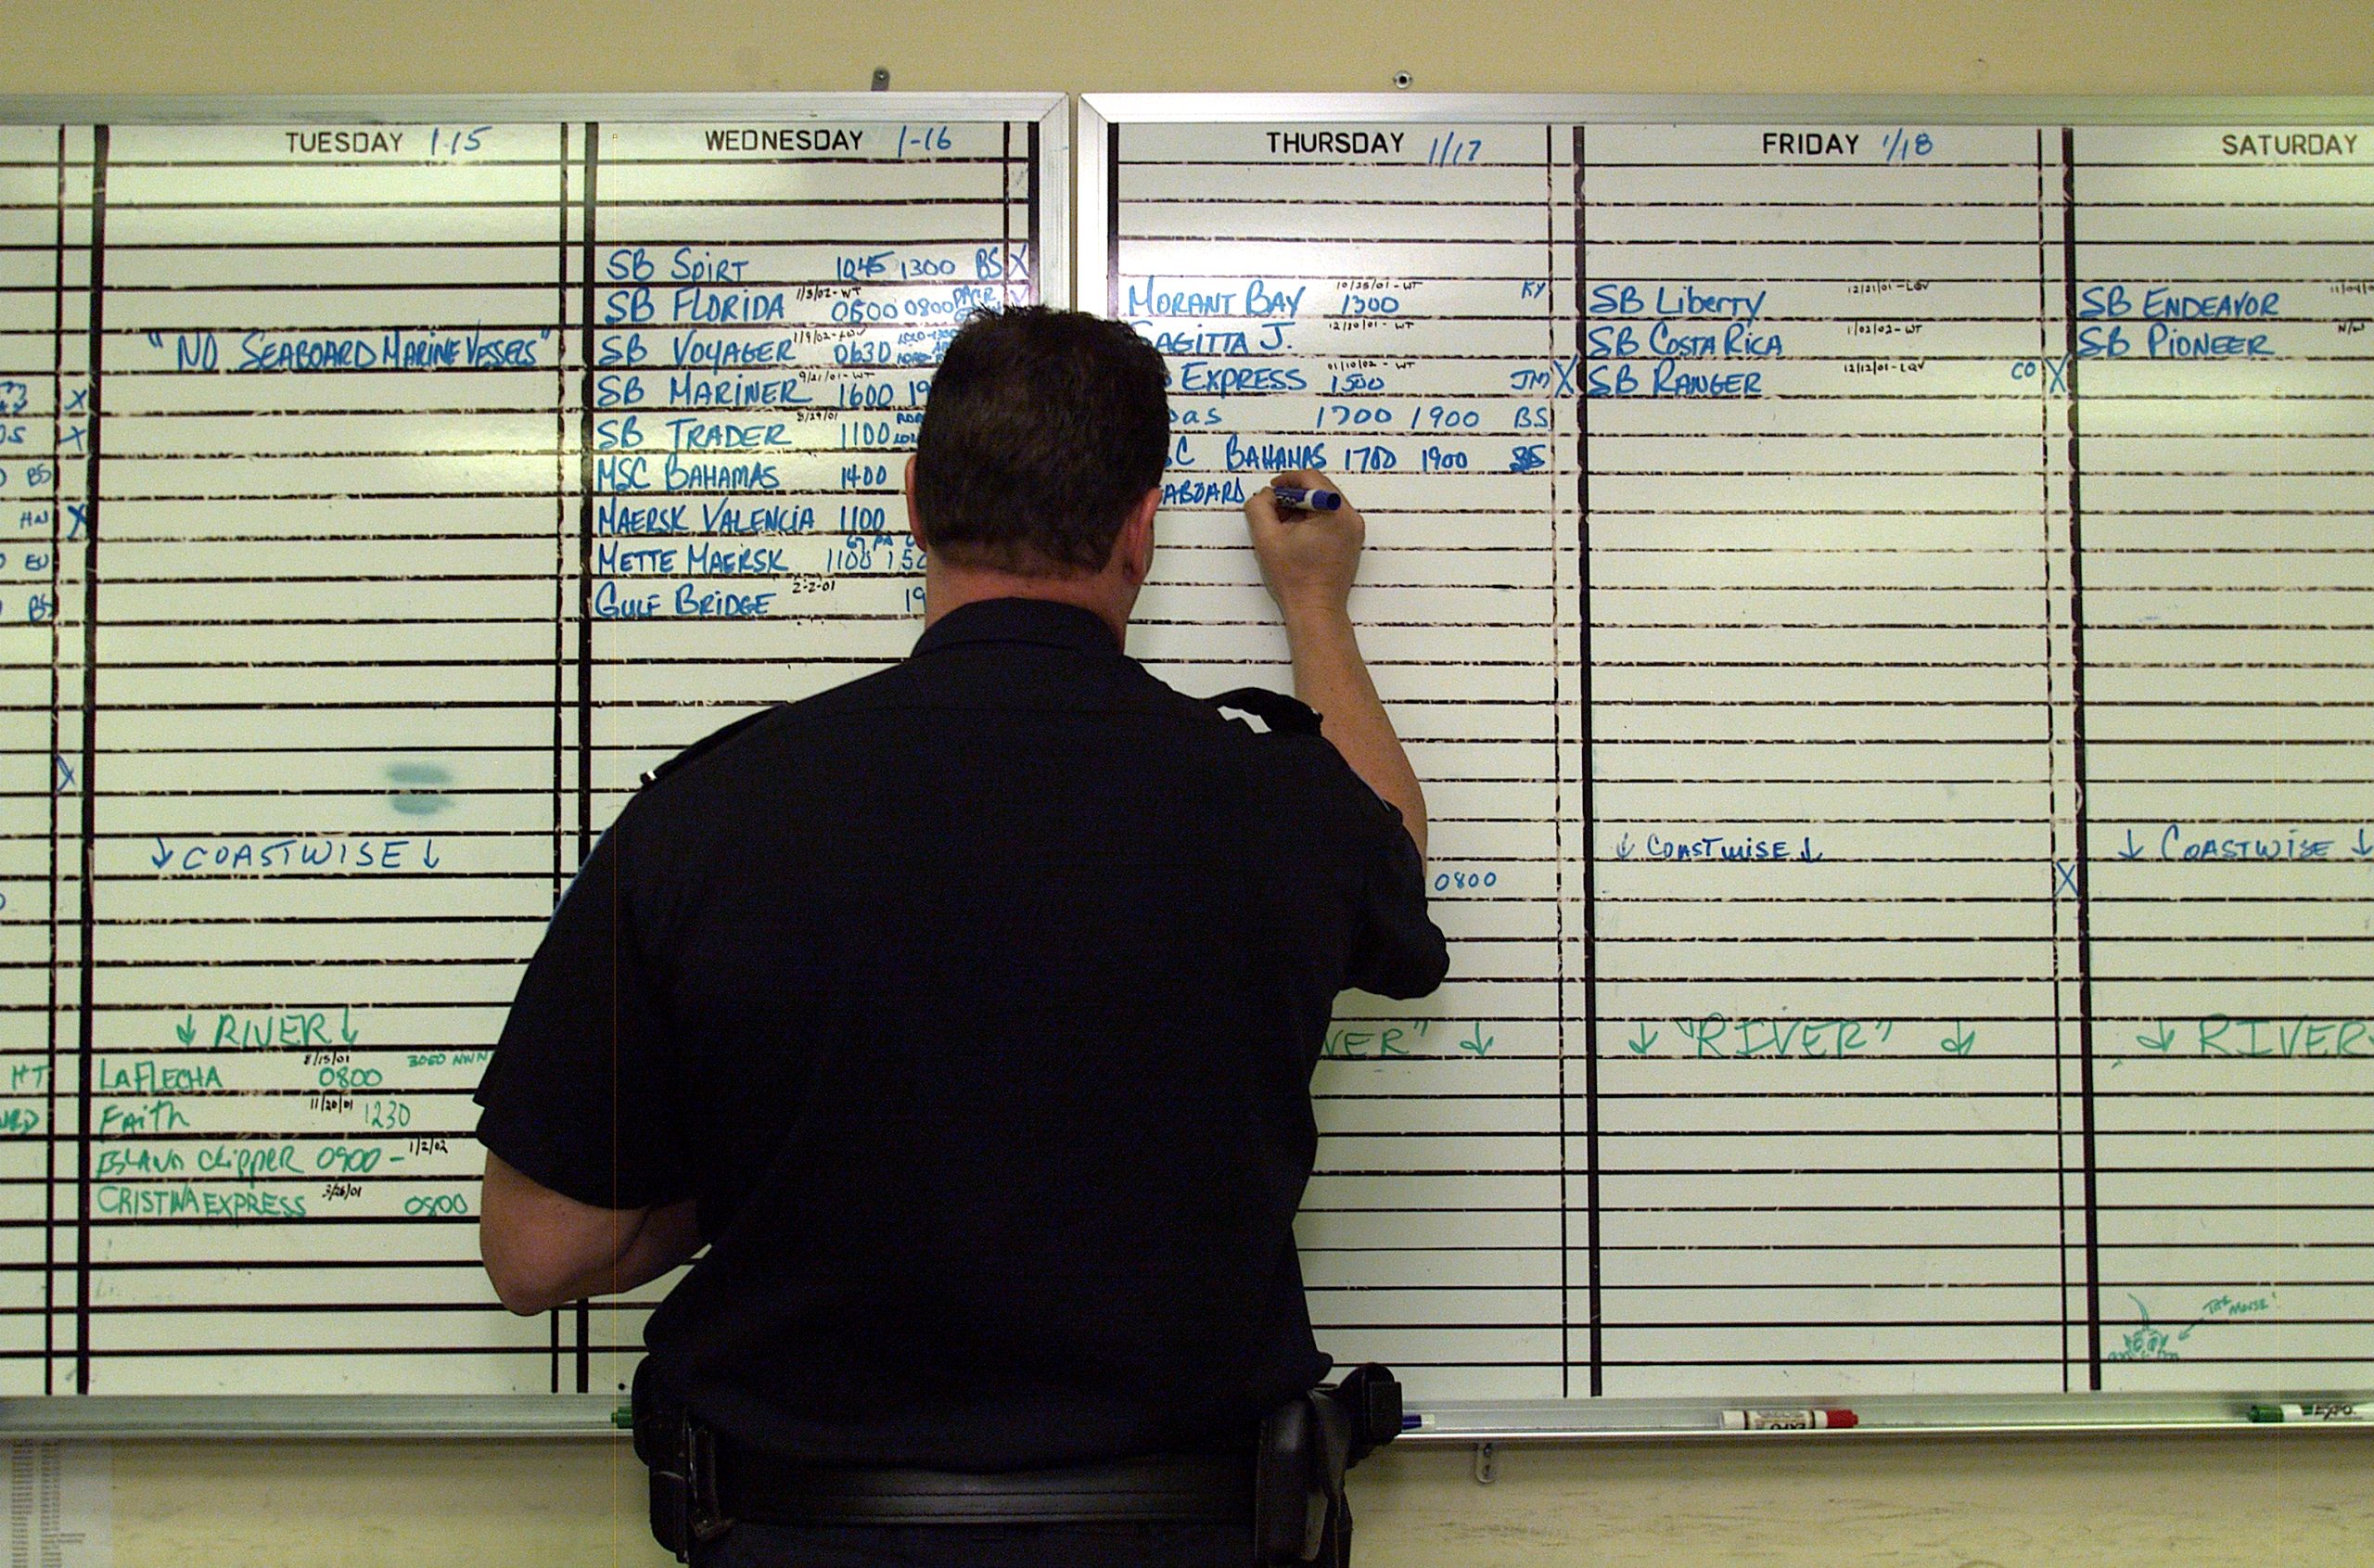 TUESDAY 1-15
"NO SEABOARD MARINE VESSELS"
↓ COASTWISE ↓
↓ RIVER ↓
8/15/01
LAFLECHA 0800
11/20/01
Faith 1230
ISLAND CLIPPER 0900 - 1/2/02
CRISTINA EXPRESS 3/26/01 0800
X
X
BS
HN X
EU
BS
X
HT
WEDNESDAY 1-16
SB SPIRT 1045 1300 BS X
1/3/02-WT
SB FLORIDA 0500 0800
1/9/02-LQV
SB VOYAGER 0630
9/21/01-WT
SB MARINER 1600
8/29/01
SB TRADER 1100
MSC BAHAMAS 1400
MAERSK VALENCIA 1100
METTE MAERSK 1100
GULF BRIDGE 2-2-01
THURSDAY 1/17
10/25/01-WT KY
MORANT BAY 1300
SAGITTA J. 12/20/01-WT
01/10/02-WT
EXPRESS 1500 JM X
1700 1900 BS
BAHAMAS 1700 1900
ABOARD
0800
VER" ↓
FRIDAY 1/18
SB LIBERTY 12/21/01-LQV
SB COSTA RICA 1/02/02-WT
SB RANGER 12/12/01-LQV CO X
↓ COASTWISE ↓
X
↓ "RIVER" ↓
SATURDAY
SB ENDEAVOR
SB PIONEER
↓ COASTWISE ↓
↓ RIVER
THE MOUSE!
EXPO
EXPO